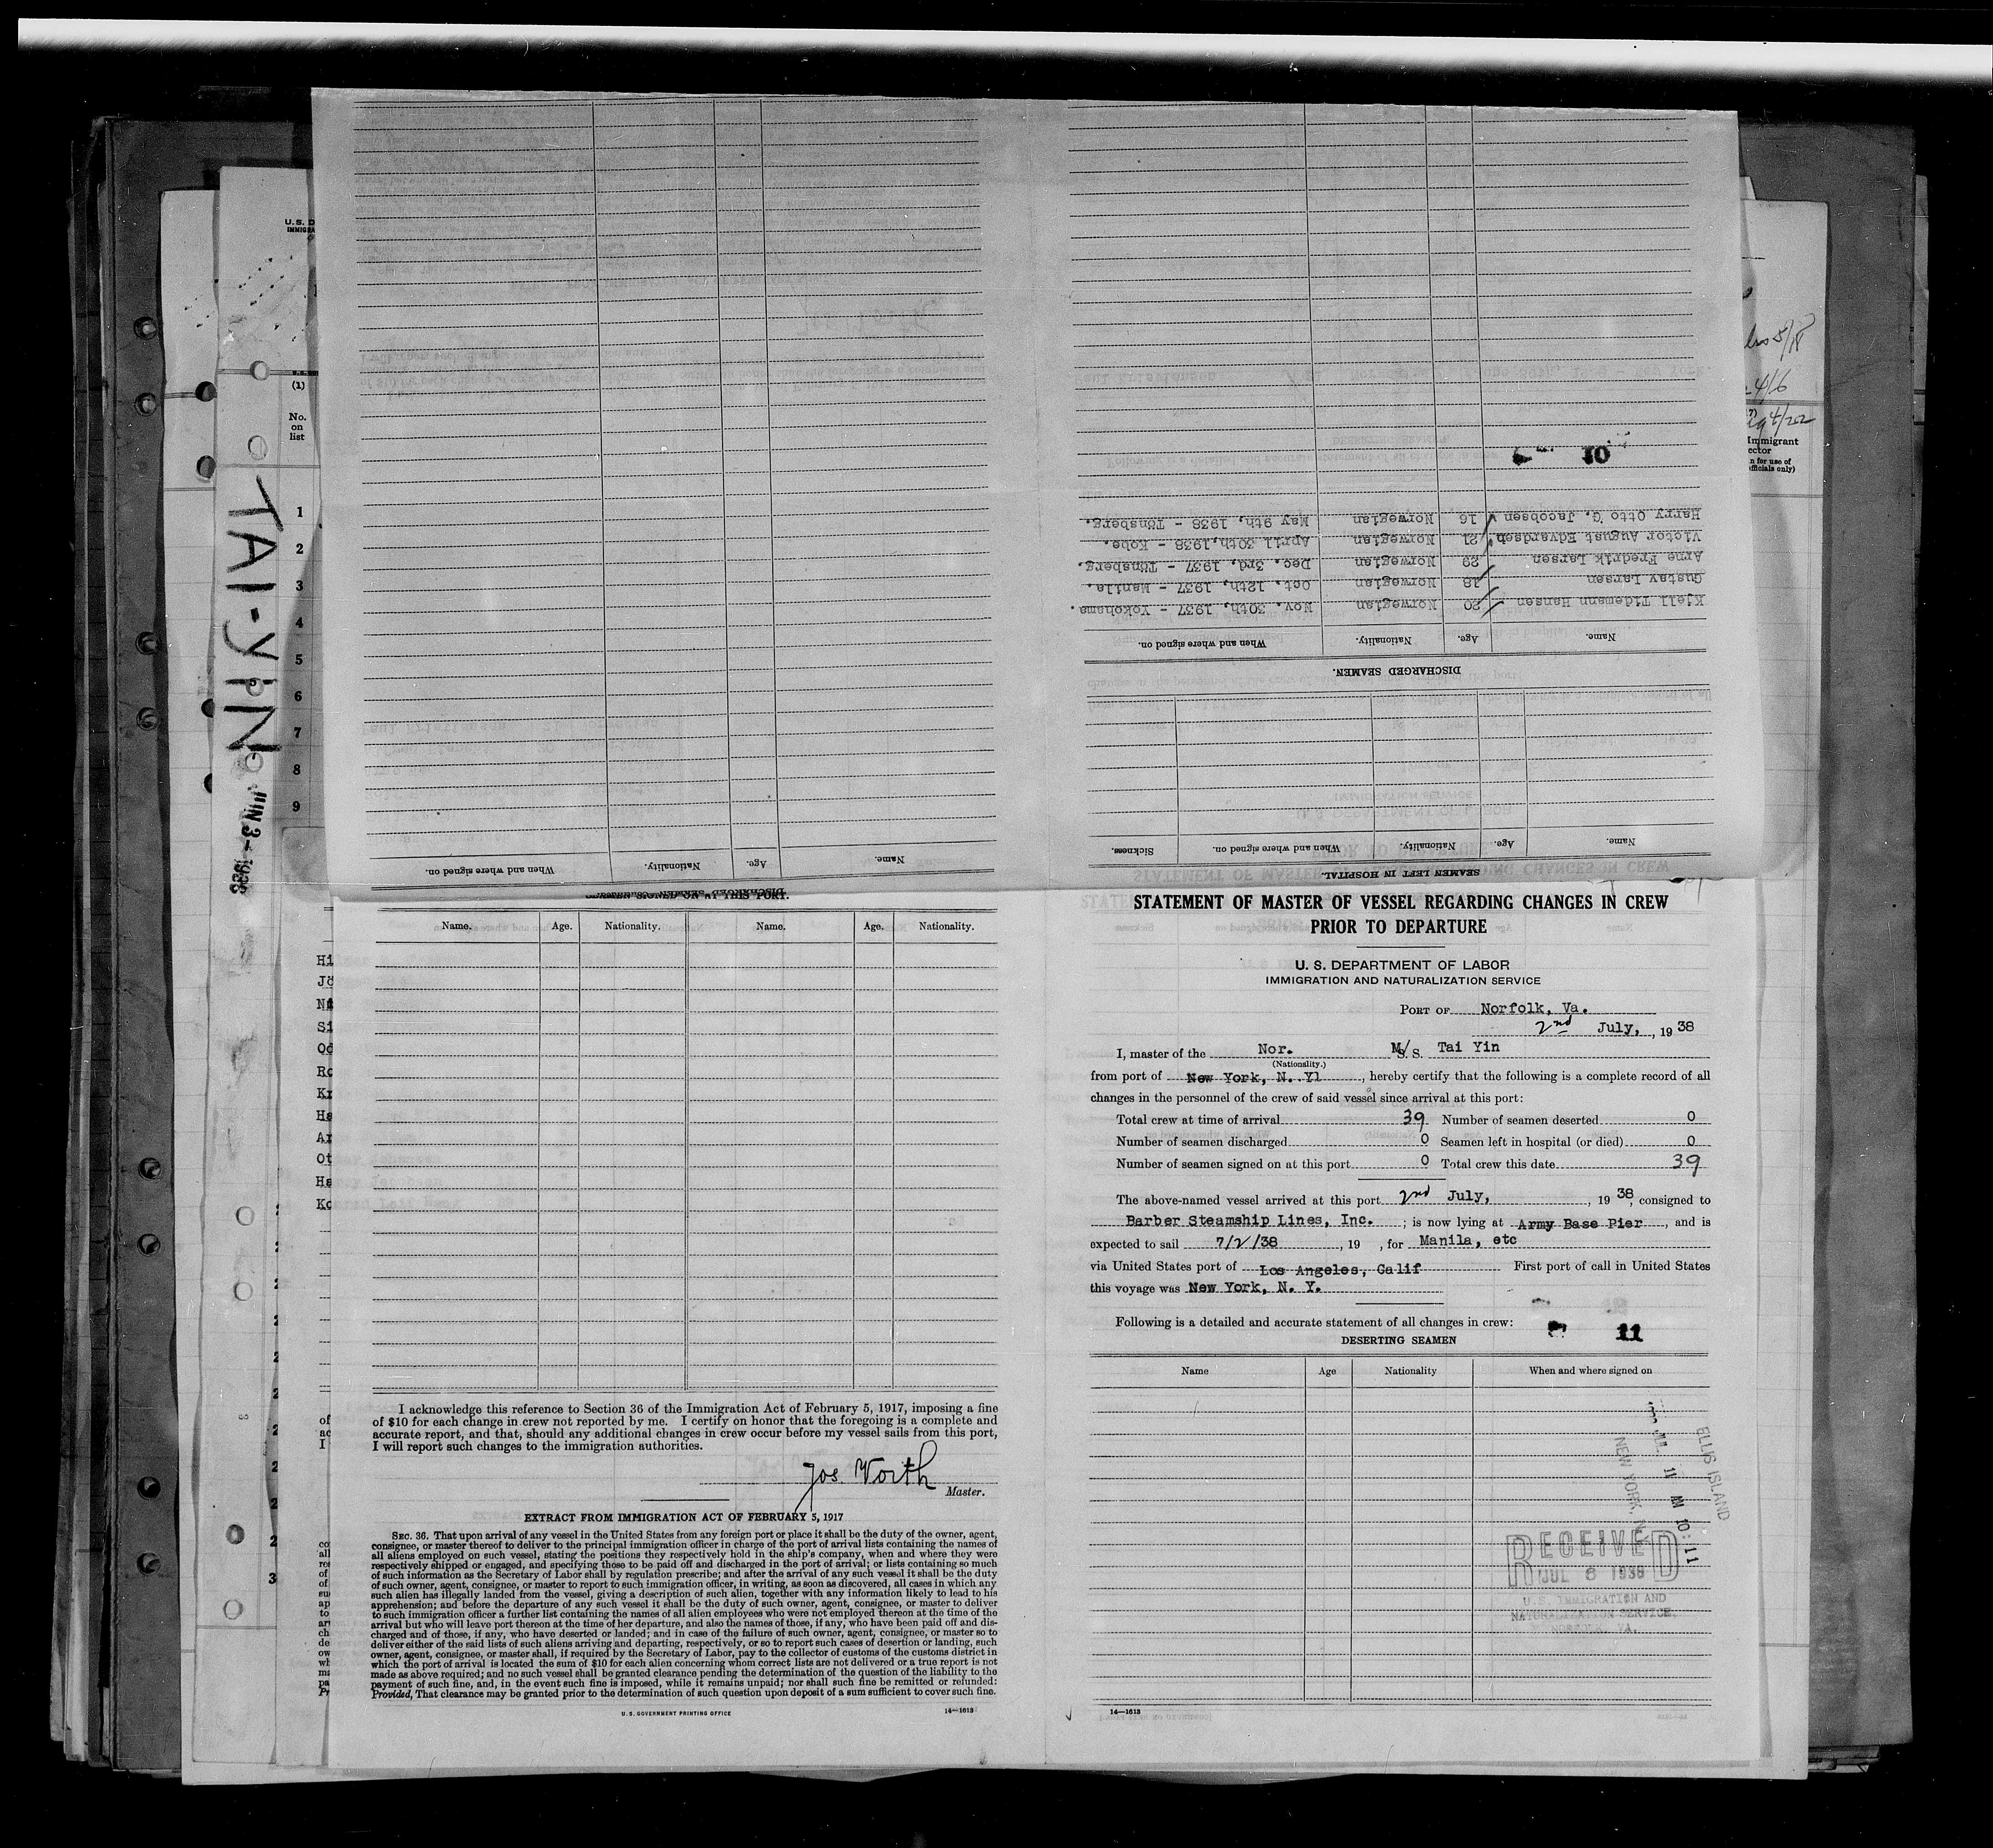 U. S. D
IMMIGRA
(1)
No.
on
list
1
2
3
4
5
6
7
8
9
TAI-YIN
JUN 3 - 1938
4/6
4/22
Immigrant
ector
n for use of
officials only)
Harry Otto G. Jacobsen 16 Norwegian May 9th, 1938 - Tönsberg.
Victor August Edvardsen 21 Norwegian April 30th, 1938 - Kobe.
Arne Fredrik Larsen 29 Norwegian Dec. 3rd, 1937 - Tönsberg.
Gustav Larsen 18 Norwegian Oct. 12th, 1937 - Manila.
Kjell Tidemann Hansen 20 Norwegian Nov. 30th, 1937 - Yokohama.
Name. Age. Nationality. When and where signed on.
DISCHARGED SEAMEN.
Name. Age. Nationality. When and where signed on. Sickness.
SEAMEN LEFT IN HOSPITAL.
10
Name. Age. Nationality. When and where signed on.
DISCHARGED SEAMEN
SEAMEN SIGNED ON AT THIS PORT.
Name. Age. Nationality. Name. Age. Nationality.
Hi
Jö
Ni
Si
Od
Ro
Kr
Ha
Ar
Ot
Ha
Ko
I acknowledge this reference to Section 36 of the Immigration Act of February 5, 1917, imposing a fine
of $10 for each change in crew not reported by me. I certify on honor that the foregoing is a complete and
accurate report, and that, should any additional changes in crew occur before my vessel sails from this port,
I will report such changes to the immigration authorities.
Jos Worth
Master.
EXTRACT FROM IMMIGRATION ACT OF FEBRUARY 5, 1917
SEC. 36. That upon arrival of any vessel in the United States from any foreign port or place it shall be the duty of the owner, agent,
consignee, or master thereof to deliver to the principal immigration officer in charge of the port of arrival lists containing the names of
all aliens employed on such vessel, stating the positions they respectively hold in the ship's company, when and where they were
respectively shipped or engaged, and specifying those to be paid off and discharged in the port of arrival; or lists containing so much
of such information as the Secretary of Labor shall by regulation prescribe; and after the arrival of any such vessel it shall be the duty
of such owner, agent, consignee, or master to report to such immigration officer, in writing, as soon as discovered, all cases in which any
such alien has illegally landed from the vessel, giving a description of such alien, together with any information likely to lead to his
apprehension; and before the departure of any such vessel it shall be the duty of such owner, agent, consignee, or master to deliver
to such immigration officer a further list containing the names of all alien employees who were not employed thereon at the time of the
arrival but who will leave port thereon at the time of her departure, and also the names of those, if any, who have been paid off and dis-
charged and of those, if any, who have deserted or landed; and in case of the failure of such owner, agent, consignee, or master so to
deliver either of the said lists of such aliens arriving and departing, respectively, or so to report such cases of desertion or landing, such
owner, agent, consignee, or master shall, if required by the Secretary of Labor, pay to the collector of customs of the customs district in
which the port of arrival is located the sum of $10 for each alien concerning whom correct lists are not delivered or a true report is not
made as above required; and no such vessel shall be granted clearance pending the determination of the question of the liability to the
payment of such fine, and, in the event such fine is imposed, while it remains unpaid; nor shall such fine be remitted or refunded:
Provided, That clearance may be granted prior to the determination of such question upon deposit of a sum sufficient to cover such fine.
U. S. GOVERNMENT PRINTING OFFICE 14—1613
STATEMENT OF MASTER OF VESSEL REGARDING CHANGES IN CREW
PRIOR TO DEPARTURE
U. S. DEPARTMENT OF LABOR
IMMIGRATION AND NATURALIZATION SERVICE
PORT OF Norfolk, Va.
2nd July, , 19 38
I, master of the Nor. M/S. S. Tai Yin
(Nationality.)
from port of New York, N. Yl , hereby certify that the following is a complete record of all
changes in the personnel of the crew of said vessel since arrival at this port:
Total crew at time of arrival 39 Number of seamen deserted 0
Number of seamen discharged 0 Seamen left in hospital (or died) 0
Number of seamen signed on at this port 0 Total crew this date 39
The above-named vessel arrived at this port 2nd July, , 19 38, consigned to
Barber Steamship Lines, Inc. ; is now lying at Army Base Pier , and is
expected to sail 7/2/38 , 19 , for Manila, etc
via United States port of Los Angeles, Calif First port of call in United States
this voyage was New York, N. Y.
Following is a detailed and accurate statement of all changes in crew:
11
DESERTING SEAMEN
Name Age Nationality When and where signed on
ELLIS ISLAND
JUL 11 AM 10:11
NEW YORK, N.Y.
RECEIVED
JUL 6 1938
U.S. IMMIGRATION AND
NATURALIZATION SERVICE.
NORFOLK, VA.
14—1613